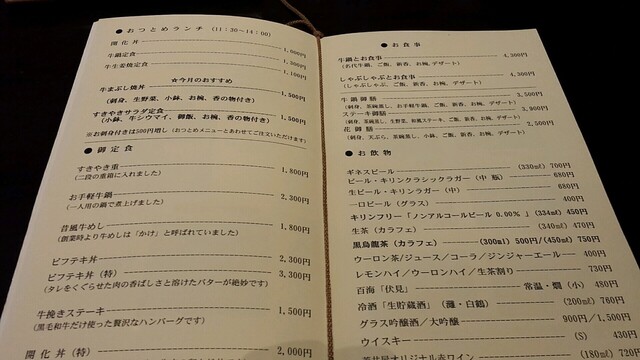 ●おつとめランチ (11:30～14:00)
開化丼 1,000円
牛鍋定食 1,000円
牛生姜焼定食 1,100円
☆今月のおすすめ
牛まぶし焼丼 1,500円
(刺身、生野菜、小鉢、お椀、香の物付き)
すきやきサラダ定食 1,500円
(小鉢、牛シウマイ、御飯、お椀、香の物付き)
※お刺身付きは500円増し (おつとめメニューとあわせてご注文いただけます)
●御定食
すきやき重 1,800円
(二段の重箱に入れました)
お手軽牛鍋 2,300円
(一人用の鍋で煮上げました)
昔風牛めし 1,800円
(創業時より牛めしは「かけ」と呼ばれていました)
ビフテキ丼 2,300円
ビフテキ丼(特) 3,300円
(タレをくぐらせた肉の香ばしさと溶けたバターが絶妙です)
牛挽きステーキ 1,500円
(黒毛和牛だけ使った贅沢なハンバーグです)
開化丼(特) 2,000円
●お食事
牛鍋とお食事 4,300円
(名代牛鍋、ご飯、新香、お椀、デザート)
しゃぶしゃぶとお食事 4,300円
(しゃぶしゃぶ、ご飯、新香、お椀、デザート)
牛鍋御膳 3,500円
(刺身、茶碗蒸し、お手軽牛鍋、ご飯、新香、お椀、デザート)
ステーキ御膳 3,900円
(刺身、茶碗蒸し、生野菜、和風ステーキ、ご飯、新香、お椀、デザート)
花御膳 2,500円
(刺身、天ぷら、茶碗蒸し、小鉢、ご飯、新香、お椀、デザート)
●お飲物
ギネスビール (330ml) 700円
ビール・キリンクラシックラガー(中瓶) 680円
生ビール・キリンラガー(中) 680円
一口ビール(グラス) 400円
キリンフリー「ノンアルコールビール 0.00%」(334ml) 450円
生茶(カラフェ) (340ml) 470円
黒烏龍茶(カラフェ) (300ml) 500円/(450ml) 750円
ウーロン茶/ジュース/コーラ/ジンジャーエール 400円
レモンハイ/ウーロンハイ/生茶割り 730円
百海「伏見」 常温・燗(小) 480円
冷酒「生貯蔵酒」(灘・白鶴) (200ml) 760円
グラス吟醸酒/大吟醸 900円/1,500円
ウイスキー (S) 430円
荒井屋オリジナル赤ワイン (180ml) 720